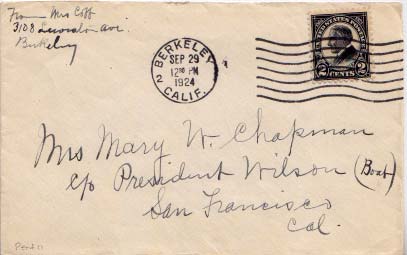 From Mrs Coff
3108 Lewiston Ave.
Berkeley
BERKELEY
SEP 29
12 30 PM
1924
2
CALIF.
UNITED STATES POSTAGE
2 CENTS 2
Mrs Mary W. Chapman
c/o President Wilson (Boat)
San Francisco
Cal.